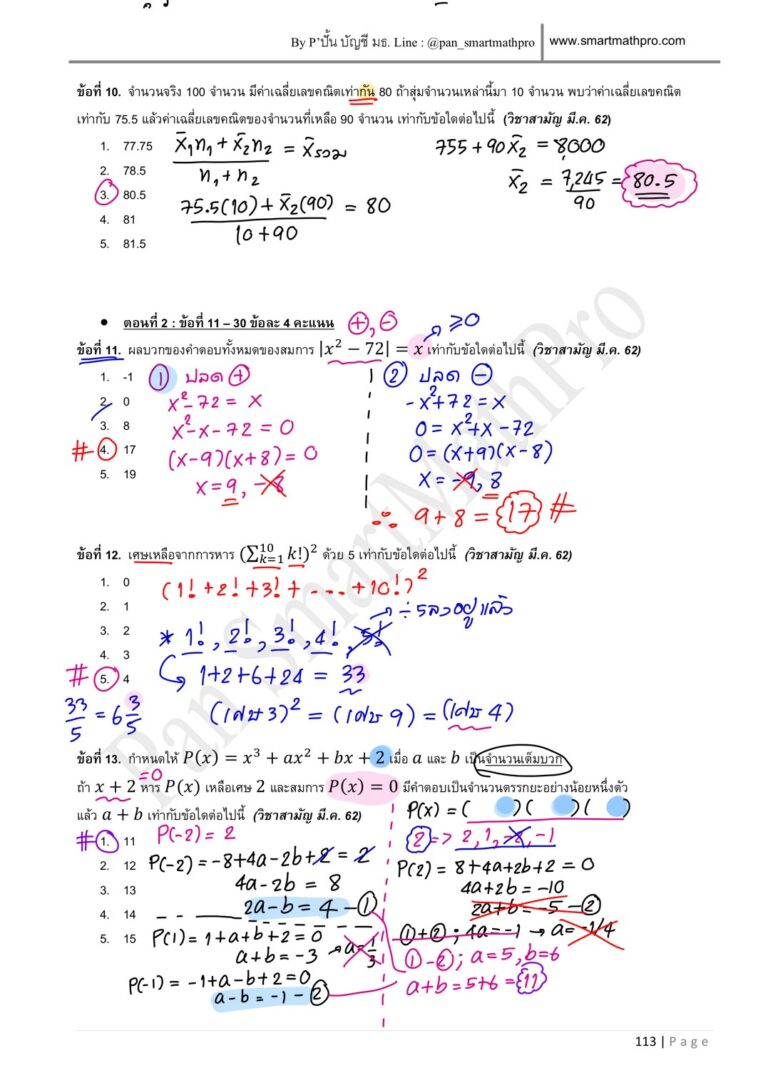 By P'ปั้น บัญชี มธ. Line : @pan_smartmathpro
www.smartmathpro.com
ข้อที่ 10. จำนวนจริง 100 จำนวน มีค่าเฉลี่ยเลขคณิตเท่ากัน 80 ถ้าสุ่มจำนวนเหล่านี้มา 10 จำนวน พบว่าค่าเฉลี่ยเลขคณิต
เท่ากับ 75.5 แล้วค่าเฉลี่ยเลขคณิตของจำนวนที่เหลือ 90 จำนวน เท่ากับข้อใดต่อไปนี้ (วิชาสามัญ มี.ค. 62)
1. 77.75
2. 78.5
3. 80.5
4. 81
5. 81.5
(x̄₁n₁ + x̄₂n₂)/(n₁ + n₂) = x̄รวม
(75.5(10) + x̄₂(90))/(10 + 90) = 80
755 + 90x̄₂ = 8,000
x̄₂ = 7,245/90 = 80.5
• ตอนที่ 2 : ข้อที่ 11 – 30 ข้อละ 4 คะแนน
⊕, ⊖
≥0
ข้อที่ 11. ผลบวกของคำตอบทั้งหมดของสมการ |x² − 72| = x เท่ากับข้อใดต่อไปนี้ (วิชาสามัญ มี.ค. 62)
1. -1
2. 0
3. 8
# 4. 17
5. 19
① ปลด ⊕
x²-72 = x
x²-x-72 = 0
(x-9)(x+8) = 0
x = 9, -8
② ปลด ⊖
-x²+72 = x
0 = x²+x-72
0 = (x+9)(x-8)
x = -9, 8
∴ 9+8 = 17 #
ข้อที่ 12. เศษเหลือจากการหาร (∑ₖ₌₁¹⁰ k!)² ด้วย 5 เท่ากับข้อใดต่อไปนี้ (วิชาสามัญ มี.ค. 62)
1. 0
2. 1
3. 2
4. 3
# 5. 4
(1!+2!+3!+ --- +10!)²
÷5ลงอยู่แล้ว
* 1!, 2!, 3!, 4!, 5!
1+2+6+24 = 33
33/5 = 6 3/5
(เศษ 3)² = (เศษ 9) = (เศษ 4)
ข้อที่ 13. กำหนดให้ P(x) = x³ + ax² + bx + 2 เมื่อ a และ b เป็นจำนวนเต็มบวก
=0
ถ้า x + 2 หาร P(x) เหลือเศษ 2 และสมการ P(x) = 0 มีคำตอบเป็นจำนวนตรรกยะอย่างน้อยหนึ่งตัว
แล้ว a + b เท่ากับข้อใดต่อไปนี้ (วิชาสามัญ มี.ค. 62)
# 1. 11
2. 12
3. 13
4. 14
5. 15
P(-2) = 2
P(-2) = -8+4a-2b+2 = 2
4a-2b = 8
2a-b = 4 -①
P(1) = 1+a+b+2 = 0
a+b = -3 → a = 1/3
P(-1) = -1+a-b+2 = 0
a-b = -1 -②
P(x) = ( )( )( )
2 => 2, 1, -2, -1
P(2) = 8+4a+2b+2 = 0
4a+2b = -10
2a+b = -5 -②
①+②; 4a = -1 → a = -1/4
①-②; a=5, b=6
a+b = 5+6 = 11
Pan SmartMathPro
113 | Page